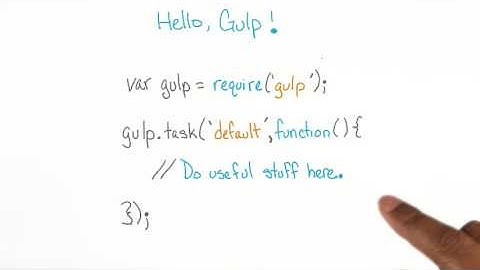 Hello, Gulp!
var gulp = require('gulp');
gulp.task('default',function(){
// Do useful stuff here.
});